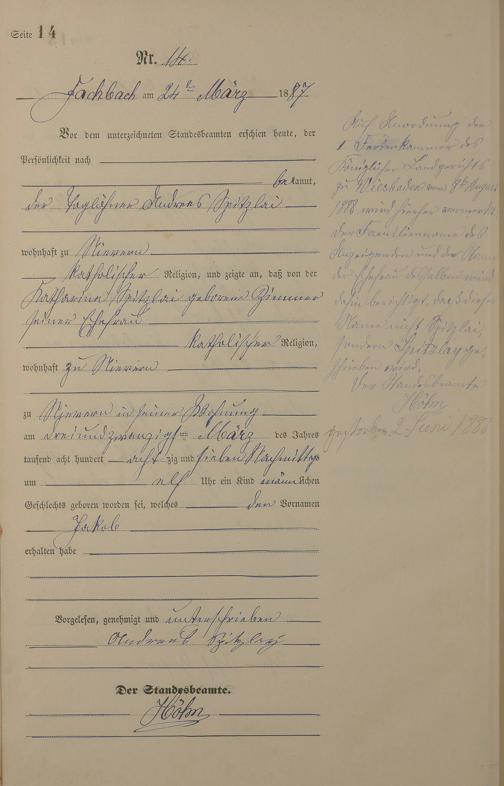 Seite 14
Nr. 14.
Fachbach am 24ten März 1887
Vor dem unterzeichneten Standesbeamten erschien heute, der
Persönlichkeit nach
bekannt,
der Taglöhner Andreas Spitzlai
wohnhaft zu Nievern
katholischer Religion, und zeigte an, daß von der
Katharina Spitzlai geborene Zimmer
seiner Ehefrau
katholischer Religion,
wohnhaft zu Nievern
zu Nievern in seiner Wohnung
am dreiundzwanzigsten März des Jahres
tausend acht hundert acht zig und sieben Nachmittags
um elf Uhr ein Kind männlichen
Geschlechts geboren worden sei, welches den Vornamen
Jakob
erhalten habe
Vorgelesen, genehmigt und unterschrieben
Andreas Spitzlay
Der Standesbeamte.
Höhn
Auf Anordnung der
1 Ferienkammer des
Königlichen Landgerichts
zu Wiesbaden vom 8ten August
1888 wird hierher vermerkt
der Familienname des
Anzeigenden und der Name
der Ehefrau desselben wird
dahin berichtigt, daß dieser
Name nicht Spitzlai,
sondern Spitzlay ge-
schrieben wird.
Der Standesbeamte
Höhn
gestorben 2 Juni